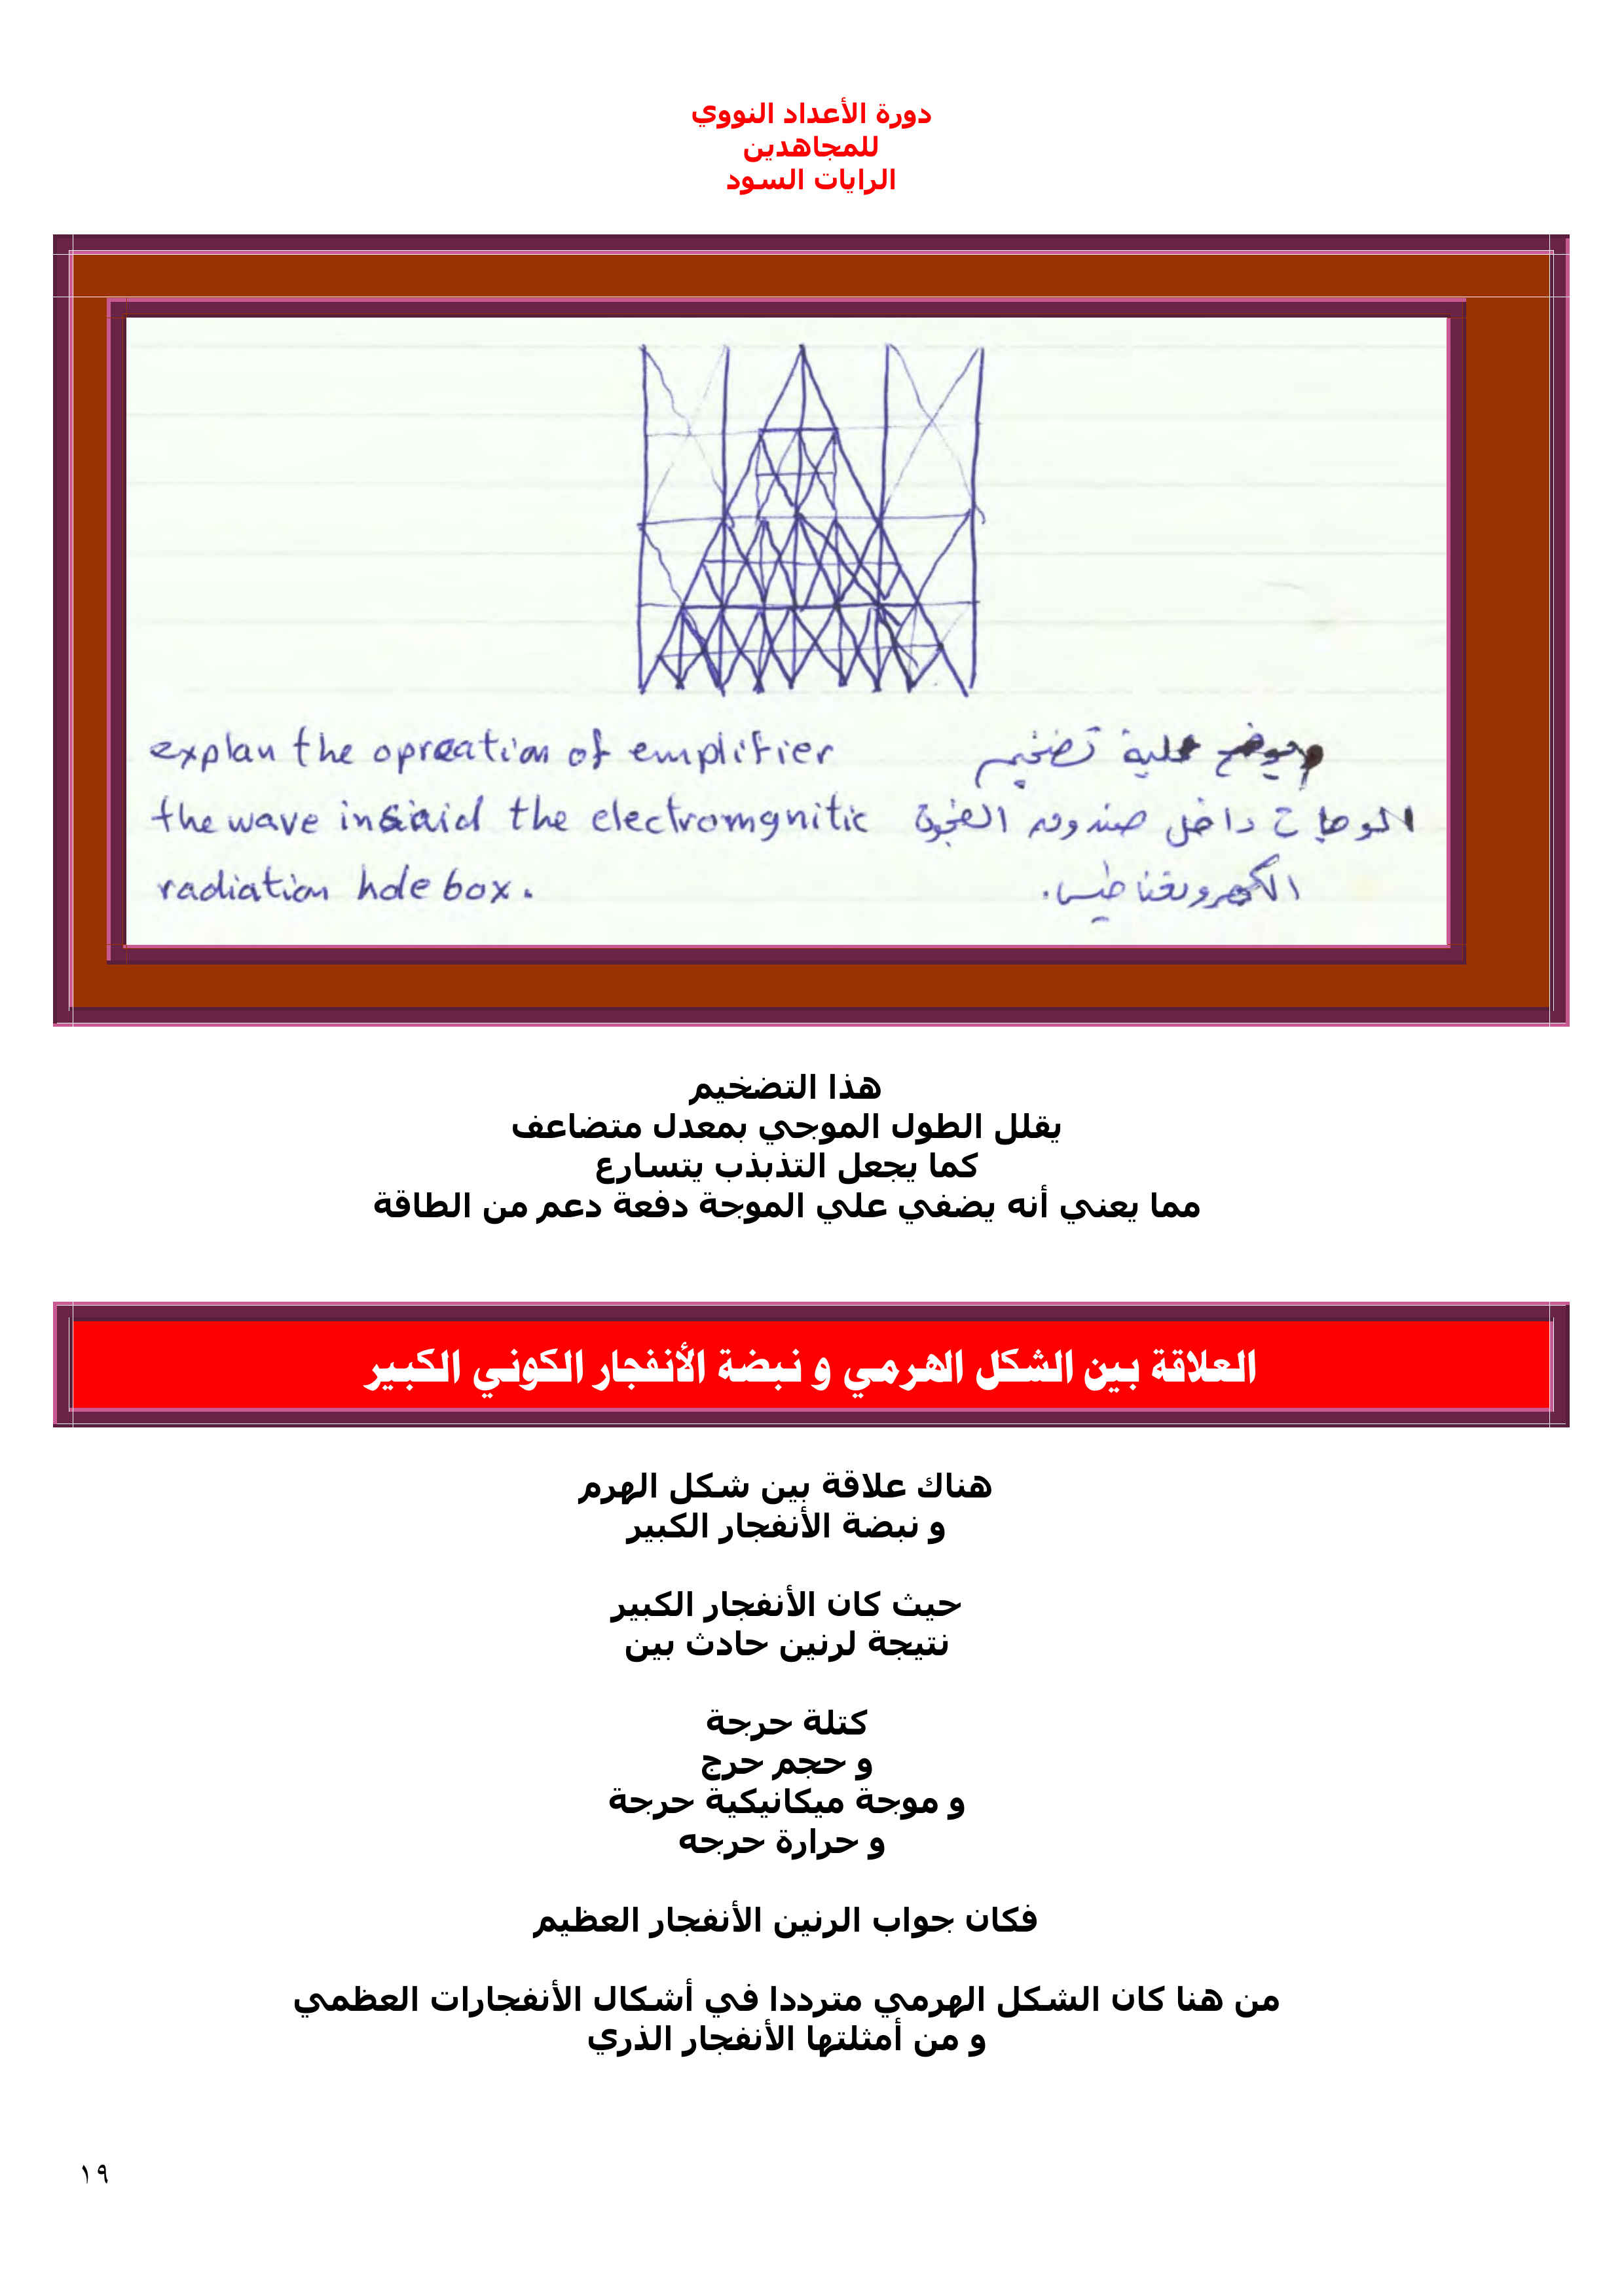 دورة الأعداد النووي
للمجاهدين
الرايات السود
explan the opreation of emplifier
the wave insiaid the electromgnitic
radiation hole box.
يوضح عملية تضخيم
الموجات داخل صندوق الفجوة
الكهرومغناطيسي.
هذا التضخيم
يقلل الطول الموجي بمعدل متضاعف
كما يجعل التذبذب يتسارع
مما يعني أنه يضفي علي الموجة دفعة دعم من الطاقة
العلاقة بين الشكل الهرمي و نبضة الأنفجار الكوني الكبير
هناك علاقة بين شكل الهرم
و نبضة الأنفجار الكبير
حيث كان الأنفجار الكبير
نتيجة لرنين حادث بين
كتلة حرجة
و حجم حرج
و موجة ميكانيكية حرجة
و حرارة حرجه
فكان جواب الرنين الأنفجار العظيم
من هنا كان الشكل الهرمي مترددا في أشكال الأنفجارات العظمي
و من أمثلتها الأنفجار الذري
١٩